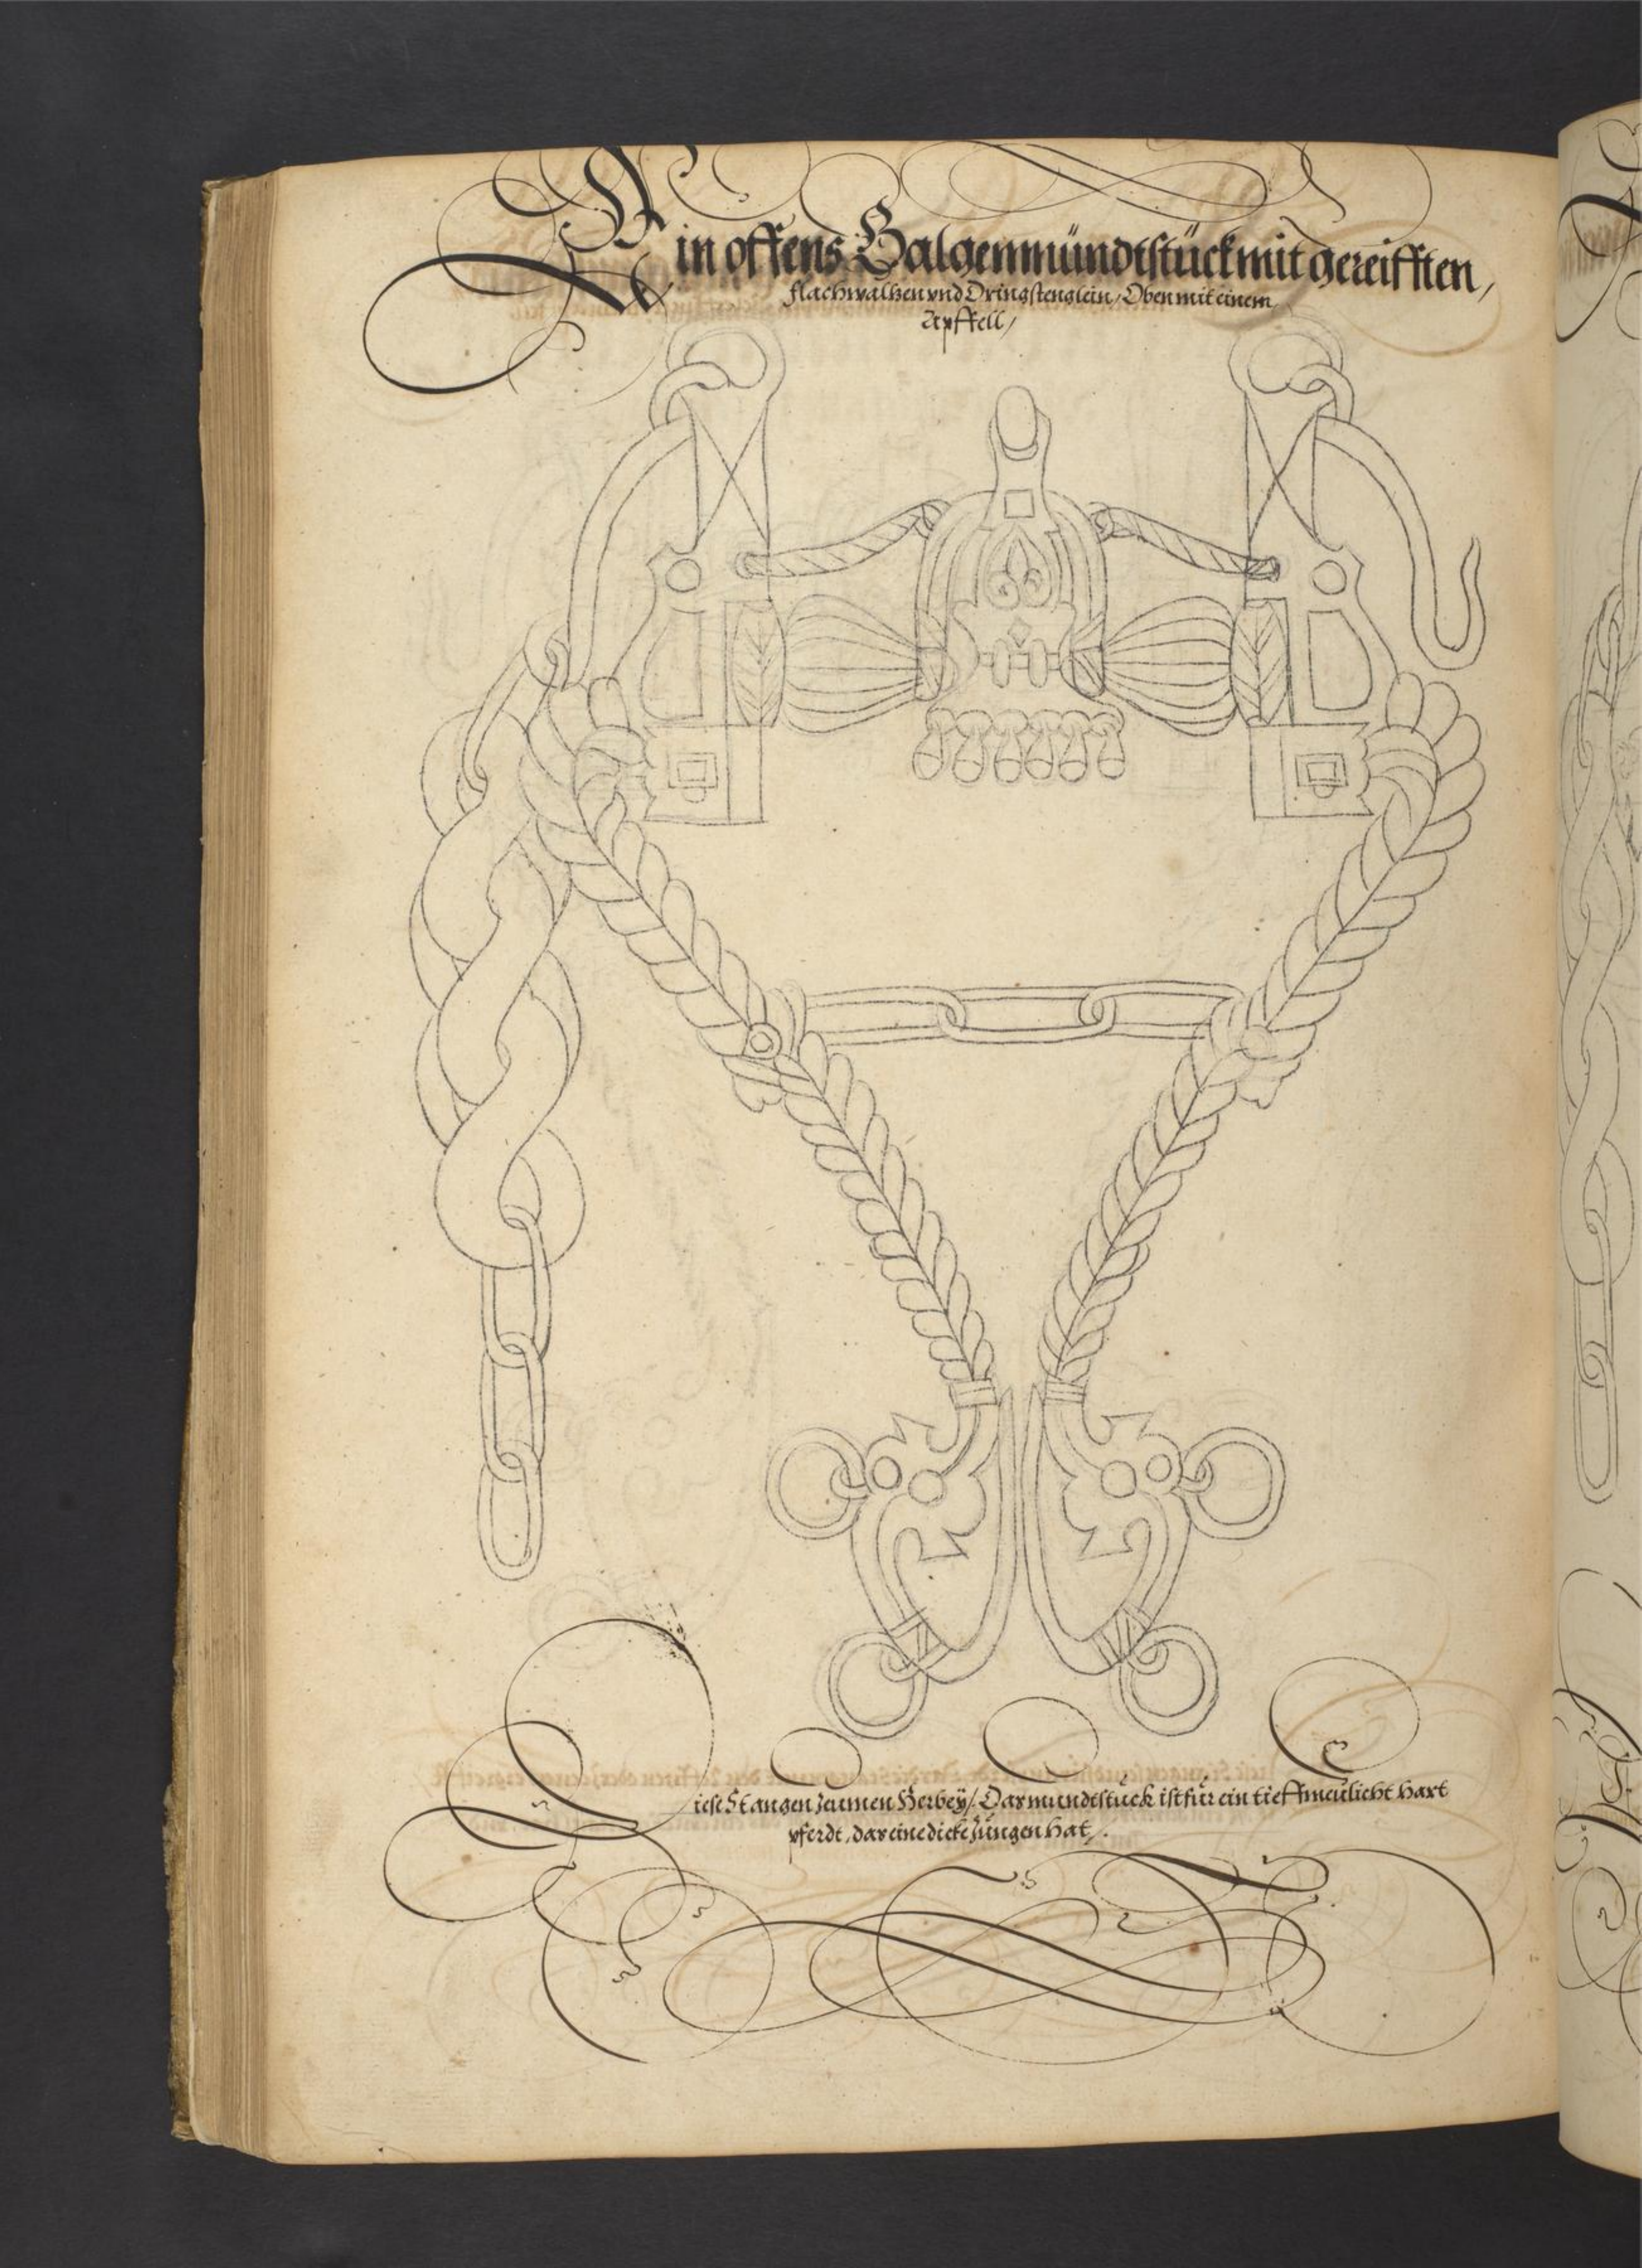 Ein offens Galgenmündtstück mit gereifften,
flachwaltzen vnd Dringstenglein, Oben mit einem
Apffell,
Diese Stangen Zeumen Herbeÿ, Das mundtstück ist für ein tieffmeülicht hart
pferdt, das eine dicke Züngen hat,.